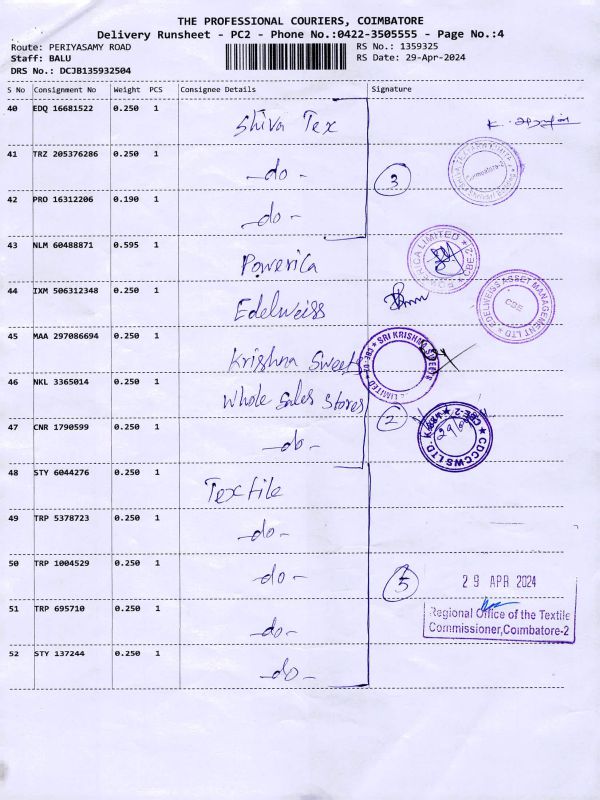 THE PROFESSIONAL COURIERS, COIMBATORE
Delivery Runsheet - PC2 - Phone No.:0422-3505555 - Page No.:4
Route: PERIYASAMY ROAD
RS No.: 1359325
Staff: BALU
RS Date: 29-Apr-2024
DRS No.: DCJB135932504
S No Consignment No Weight PCS Consignee Details Signature
40 EDQ 16681522 0.250 1 Shiva Tex
41 TRZ 205376286 0.250 1 -do-
3
42 PRO 16312206 0.190 1 -do-
43 NLM 60488871 0.595 1 Powerica
44 IXM 506312348 0.250 1 Edelweiss
EDELWEISS ASSET MANAGEMENT LTD
CBE
45 MAA 297086694 0.250 1 Krishna Sweets
SRI KRISHNA SWEETS
LIMITED
46 NKL 3365014 0.250 1 Whole Sales Stores
2
47 CNR 1790599 0.250 1 -do-
CDCCWS LTD.
48 STY 6044276 0.250 1 Textile
49 TRP 5378723 0.250 1 -do-
50 TRP 1004529 0.250 1 -do-
5
29 APR 2024
51 TRP 695710 0.250 1 -do-
Regional Office of the Textile
Commissioner,Coimbatore-2
52 STY 137244 0.250 1 -do-